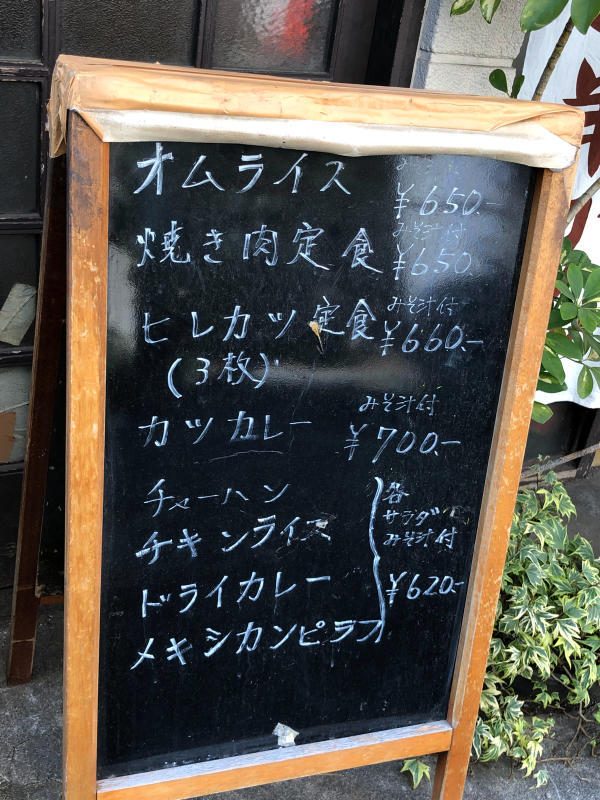 オムライス ¥650.-
みそ汁付
焼き肉定食 ¥650
みそ汁付
ヒレカツ定食 ¥660.-
(3枚)
みそ汁付
カツカレー ¥700.-
チャーハン
チキンライス
ドライカレー
メキシカンピラフ
各
サラダ
みそ汁付
¥620.-